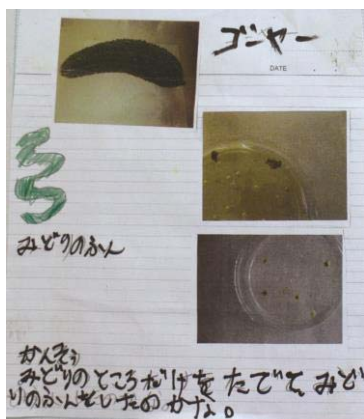 ゴーヤー
DATE
みどりのふん
かんそう
みどりのところだけをたべて、みど
りのふんをしたのかな。